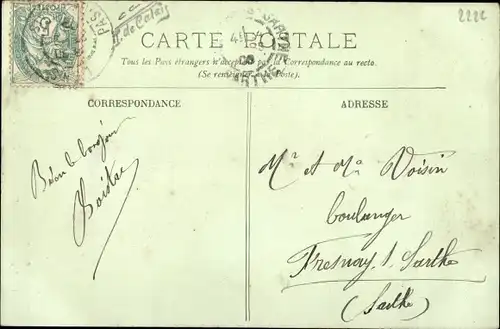 2222
CARTE POSTALE
Tous les Pays étrangers n'acceptent pas la Correspondance au recto.
(Se renseigner à la Poste).
CORRESPONDANCE
ADRESSE
Bien le bonjour
Mr et Ma Voisin
boulanger
Fresnay s. Sarthe
(Sarthe)